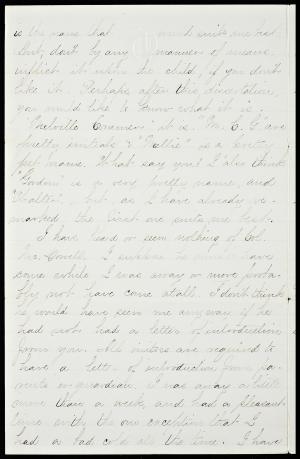 is the name that mind suits me best
But, don't by any manner of means,
inflict it upon the child, if you don't
like it. Perhaps after this dissertation,
you would like to know what it is.
"Melville Cramer" it is. "M. C. G." are
pretty initials & "Mellie" is a pretty
pet name. What say you? I also think
"Gordon" is a very pretty name, and
"Walter", but, as I have already re-
marked the first one suits me best.
I have heard or seen nothing of Col.
Mc. I suppose he must have
come while I was away or more proba-
bly not have come at all. I don't think
he would have seen me anyway if he
had not had a letter of introduction
from you. All visitors are required to
have a letter of introduction from pa-
rents or guardian. I was away a little
more than a week, and had a pleasant
time with the one exception that I
had a bad cold all the time. I have